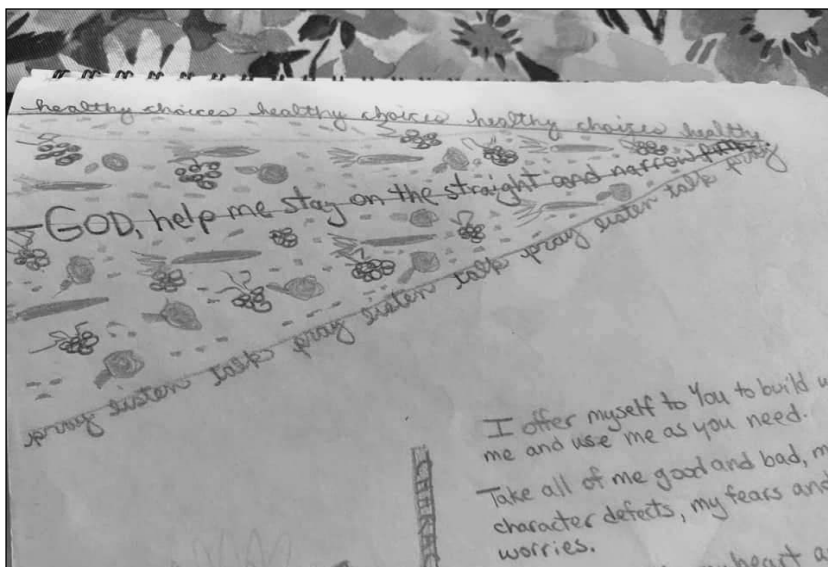 healthy choices healthy choices healthy choices healthy
GOD, help me stay on the straight and narrow path.
pray listen talk pray listen talk pray listen talk pray
I offer myself to You to build
me and use me as you need.
Take all of me good and bad,
character defects, my fears and
worries.
heart